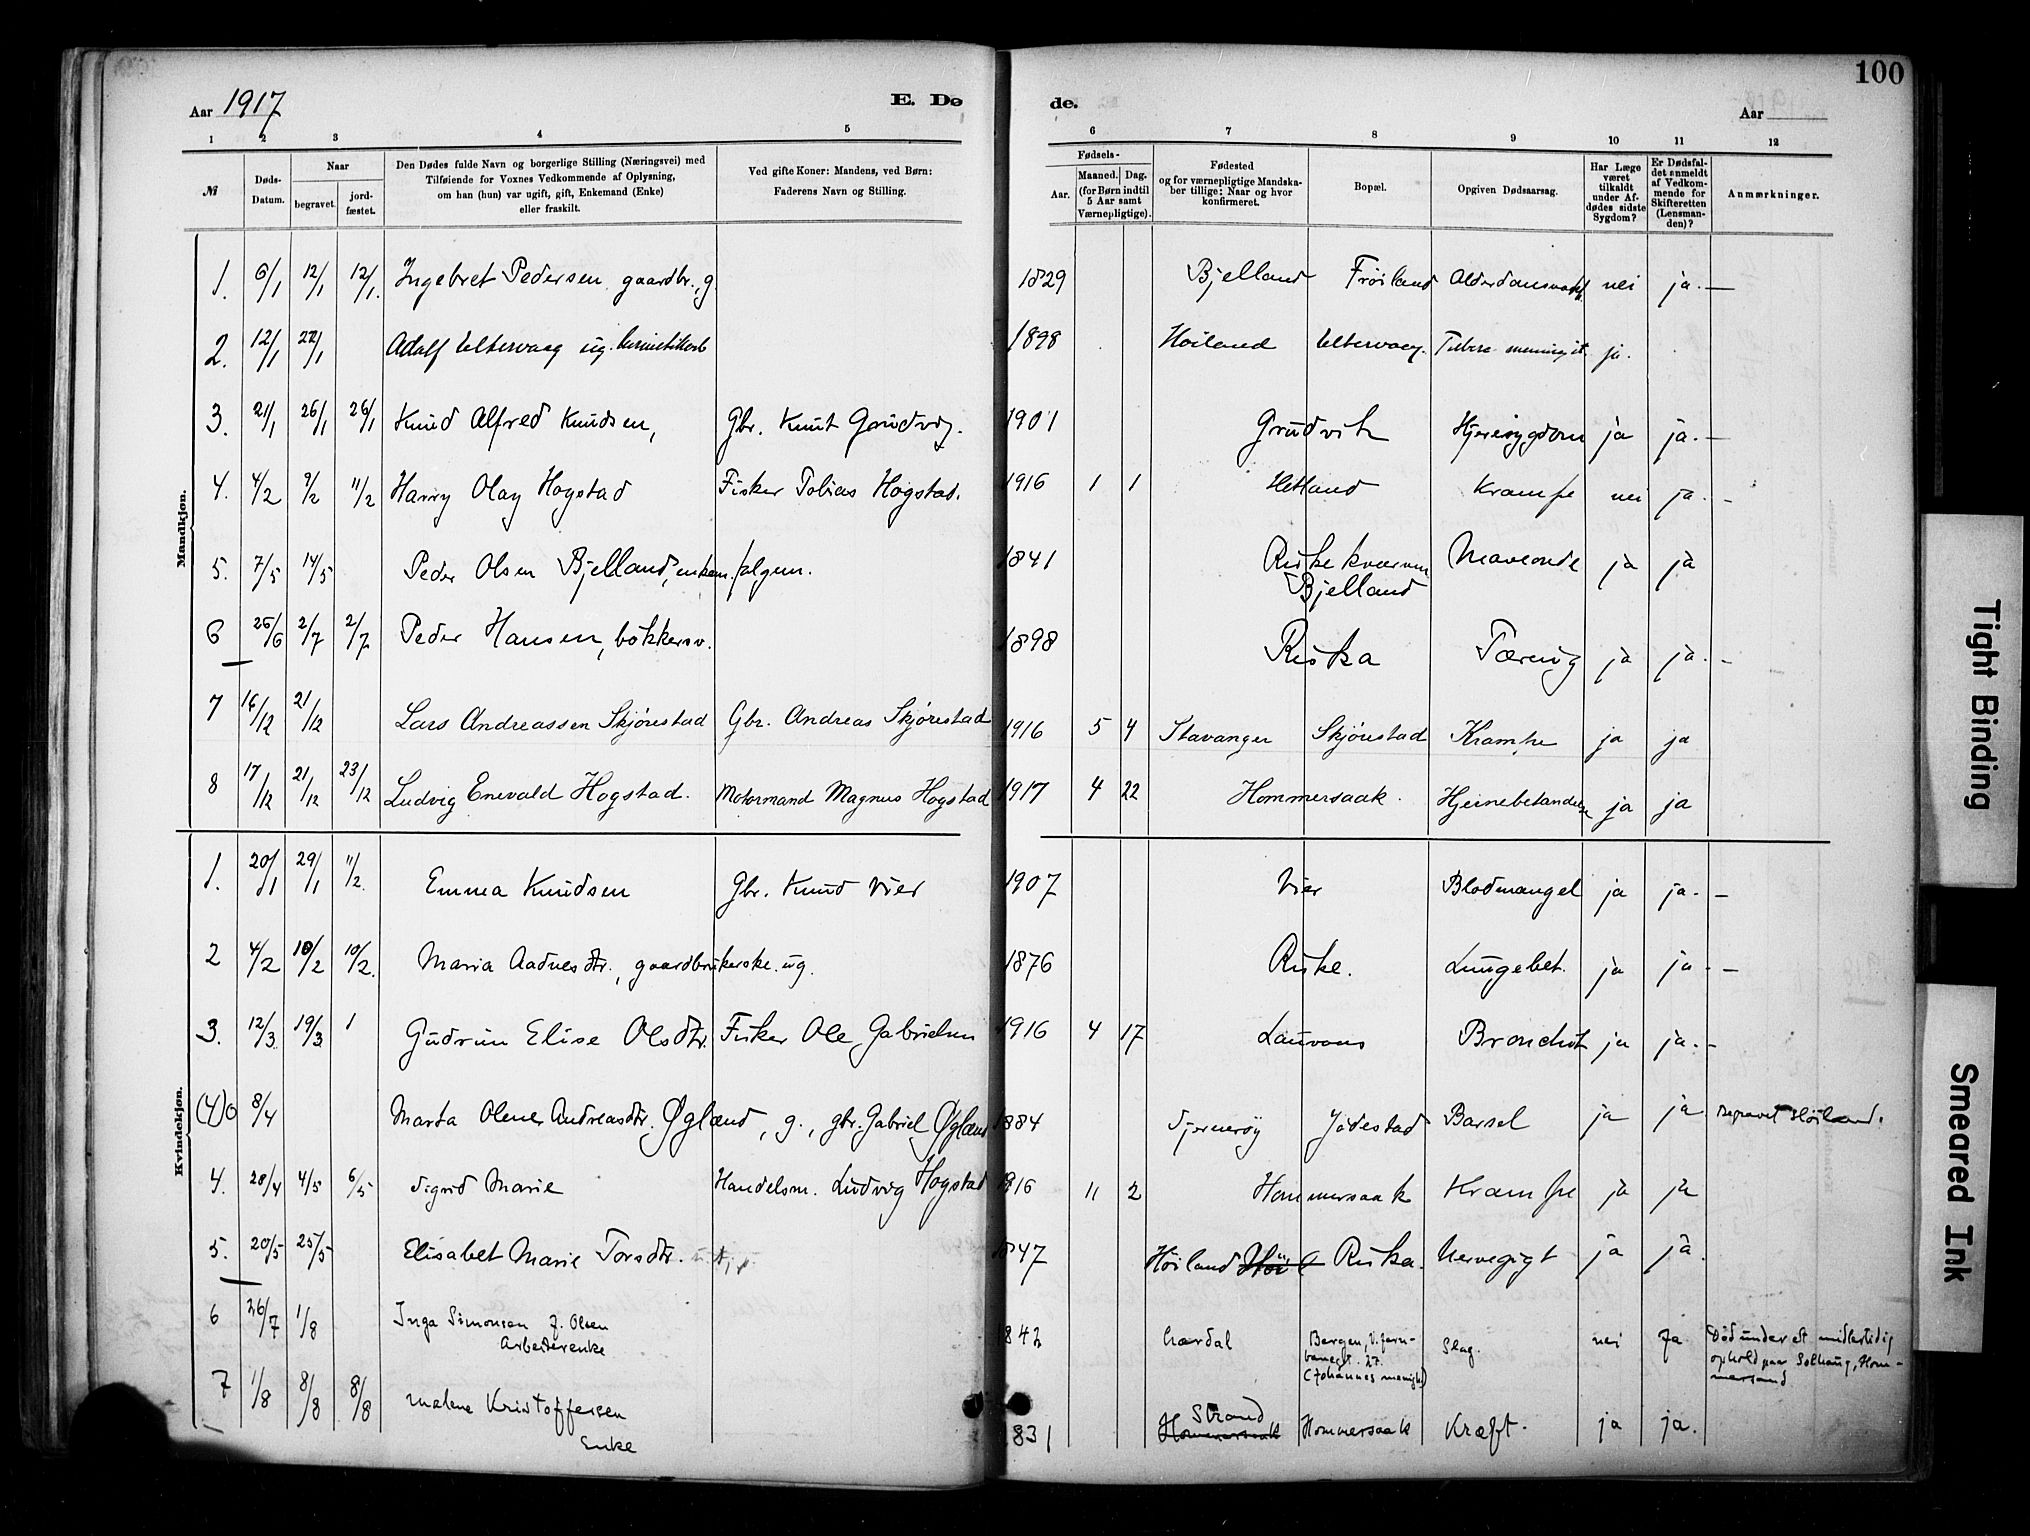 100
Aar 1917
E. Dø
de.
Aar
1 2 3 4 5 6 7 8 9 10 11 12
№
Døds-Datum.
Naar
begravet.
jord-fæstet.
Den Dødes fulde Navn og borgerlige Stilling (Næringsvei) med
Tilføiende for Voxnes Vedkommende af Oplysning,
om han (hun) var ugift, gift, Enkemand (Enke)
eller fraskilt.
Ved gifte Koner: Mandens, ved Børn:
Faderens Navn og Stilling.
Fødsels-
Aar.
Maaned. Dag.
(for Børn indtil
5 Aar samt
Værnepligtige).
Fødested
og for værnepligtige Mandska-
ber tillige: Naar og hvor
konfirmeret.
Bopæl.
Opgiven Dødsaarsag.
Har Læge
været
tilkaldt
under Af-
dødes sidste
Sygdom?
Er Dødsfal-
det anmeldt
af Vedkom-
mende for
Skifteretten
(Lensman-
den)?
Anmærkninger.
Mandkjøn.
1. 6/1 12/1 12/1. Ingebret Pedersen gaardbr., g. 1829 Bjelland Frøiland nei ja. —
2. 12/1 22/1 Adolf Ultervaag ug. 1898 Høiland Ultervaag. ja.
3. 21/1 26/1 26/1 Knud Alfred Knudsen, Gbr. Knut Grudvig. 1901 Grudvik Hjertesygdom ja ja. —
4. 4/2 9/2 11/2 Harry Olay Hogstad Fisker Tobias Hogstad. 1916 1 1 Hetland Krampe nei ja. —
5. 7/5 14/5 Peder Olsen Bjelland, enkem. folgem. 1841 Riske kværnen Maveonde ja ja
Bjelland
6 26/6 2/7 2/7 Peder Hansen, bøkkersv. 1898 Riska Tæring ja ja. —
7 16/12 21/12 Lars Andreassen Skjørestad Gbr. Andreas Skjørestad 1916 5 4 Stavanger Skjørestad Krampe ja ja
8 17/12 21/12 23/12 Ludvig Enevald Hogstad. Motormand Magnus Hogstad 1917 4 22 Hommersaak. Hjernebetændelse ja ja
Kvindekjøn.
1. 20/1 29/1 11/2. Emma Knudsen Gbr. Knud Vier 1907 Vier Blodmangel ja ja. —
2 4/2 10/2 10/2. Maria Aadnesdtr., gaardbrukerske. ug. 1876 Riske. Lungebet. ja ja. —
3. 12/3 19/3 1 Gudrun Elise Olsdtr. Fisker Ole Gabrielsen 1916 4 17 Lauvaas Bronchit ja ja. —
(4)0 8/4 Marta Olene Andreasdtr. Øgland, g., gbr. Gabriel Øgland 1884 Fjernerøy Jødestad Barsel ja ja Begravet Høiland.
4. 28/4 4/5 6/5 Sigrid Marie Handelsm. Ludvig Hogstad 1916 11 2 Hommersaak Krampe ja ja
5. 20/5 25/5 Elisabet Marie Torsdtr. 1847 Høiland Riska. Nervegigt ja ja.
6 26/7 1/8 Inga Simonsen f. Olsen 1842 Lærdal Bergen, V. jern-
Arbeiderenke banegt. 27. Slag. nei ja Død under et midlertidig
(Johannes menigh) ophold paa Solhaug, Hom-
mersand
7 1/8 8/8 8/8 Malene Kristoffersen 831 Strand Hommersaak Kræft. ja ja.
Enke Hommersaak
Tight Binding
Smeared Ink